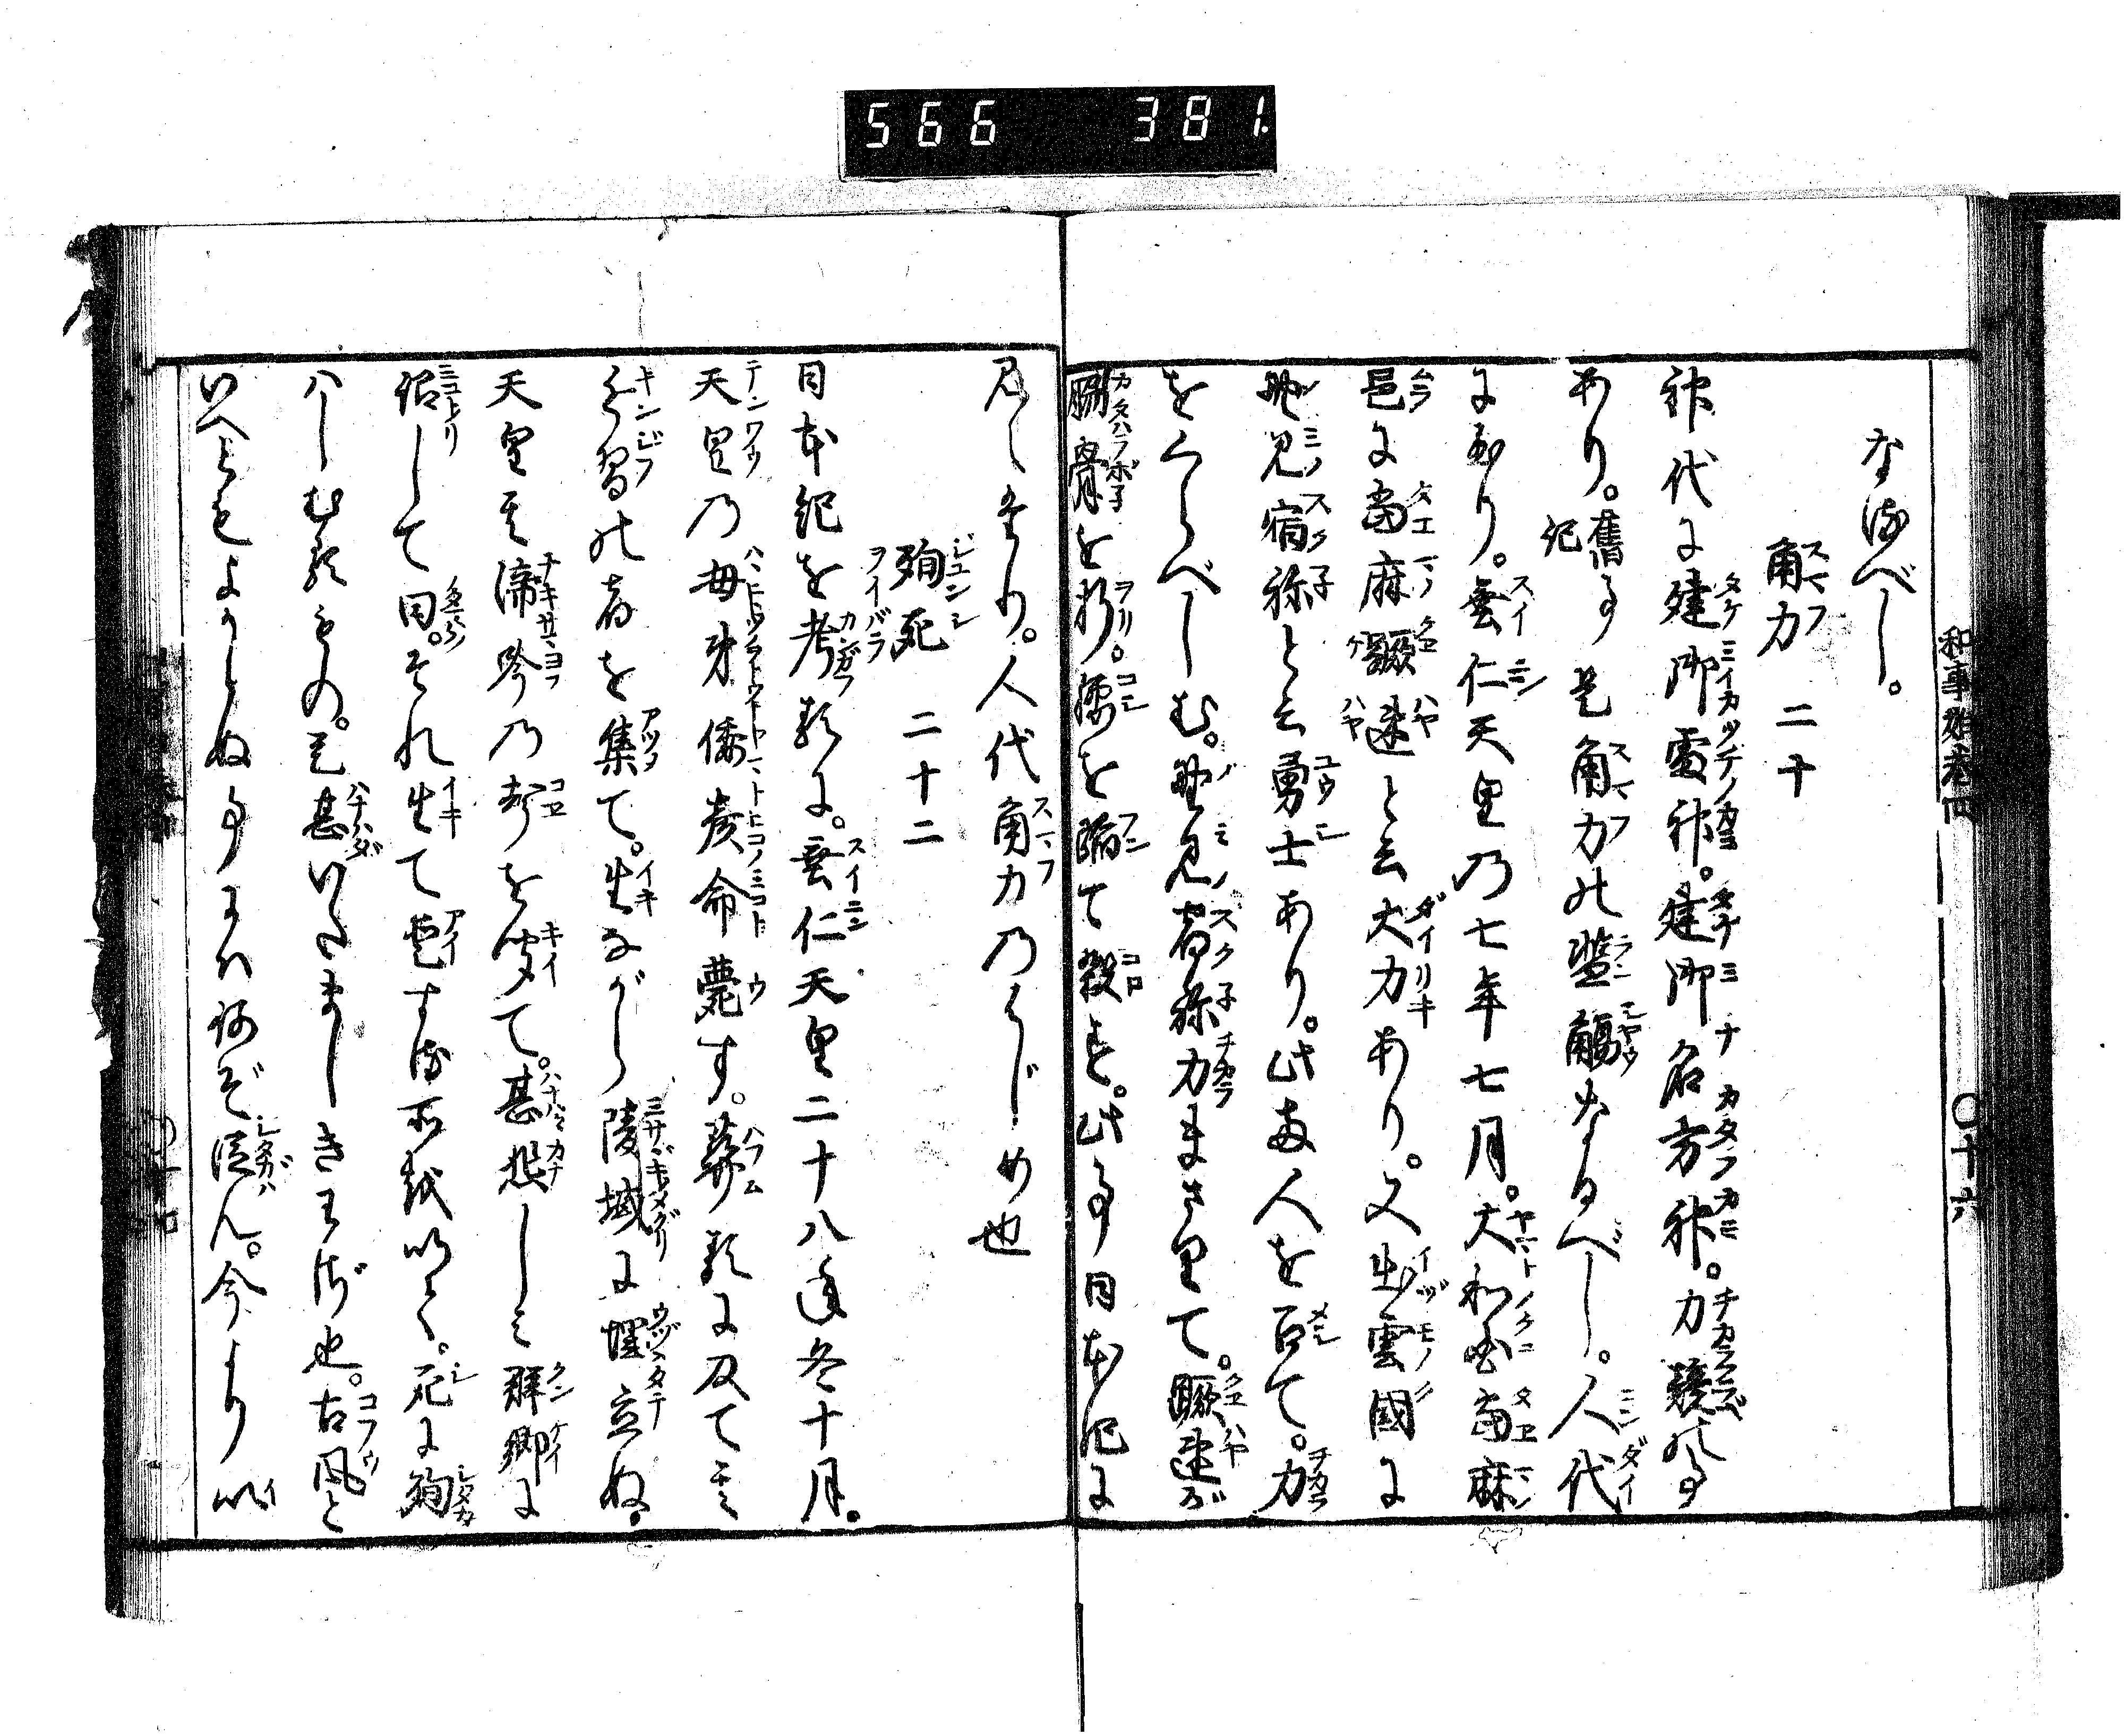 566 381.
和事始巻四 〇十六
なるべし。
角力 二十
神代に建御雷神。建御名方神。力競の事
あり。舊事記是角力の濫觴なるべし。人代
に至り。垂仁天皇乃七年七月。大和国當麻
邑に當麻蹶速と云大力あり。又出雲國に
野見宿祢と云勇士あり。此両人を召て。力
をくらべしむ。野見宿祢力まさりて。蹶速が
脇骨を折。腰を蹈て殺す。此事日本紀に
見えたり。人代角力乃はじめ也
殉死 二十二
日本紀を考るに。垂仁天皇二十八年冬十月。
天皇乃母弟倭彦命薨ず。葬るに及て其
近習の者を集て。生ながら陵域に埋立ぬ。
天皇其啼吟乃聲を聞て。甚悲しミ群卿に
詔して曰。それ生て愛する所を以て。死に殉
ハしむるもの。是甚いたましきわざ也。古風と
いへどもよからぬ事をバ何ぞ従ん。今より以